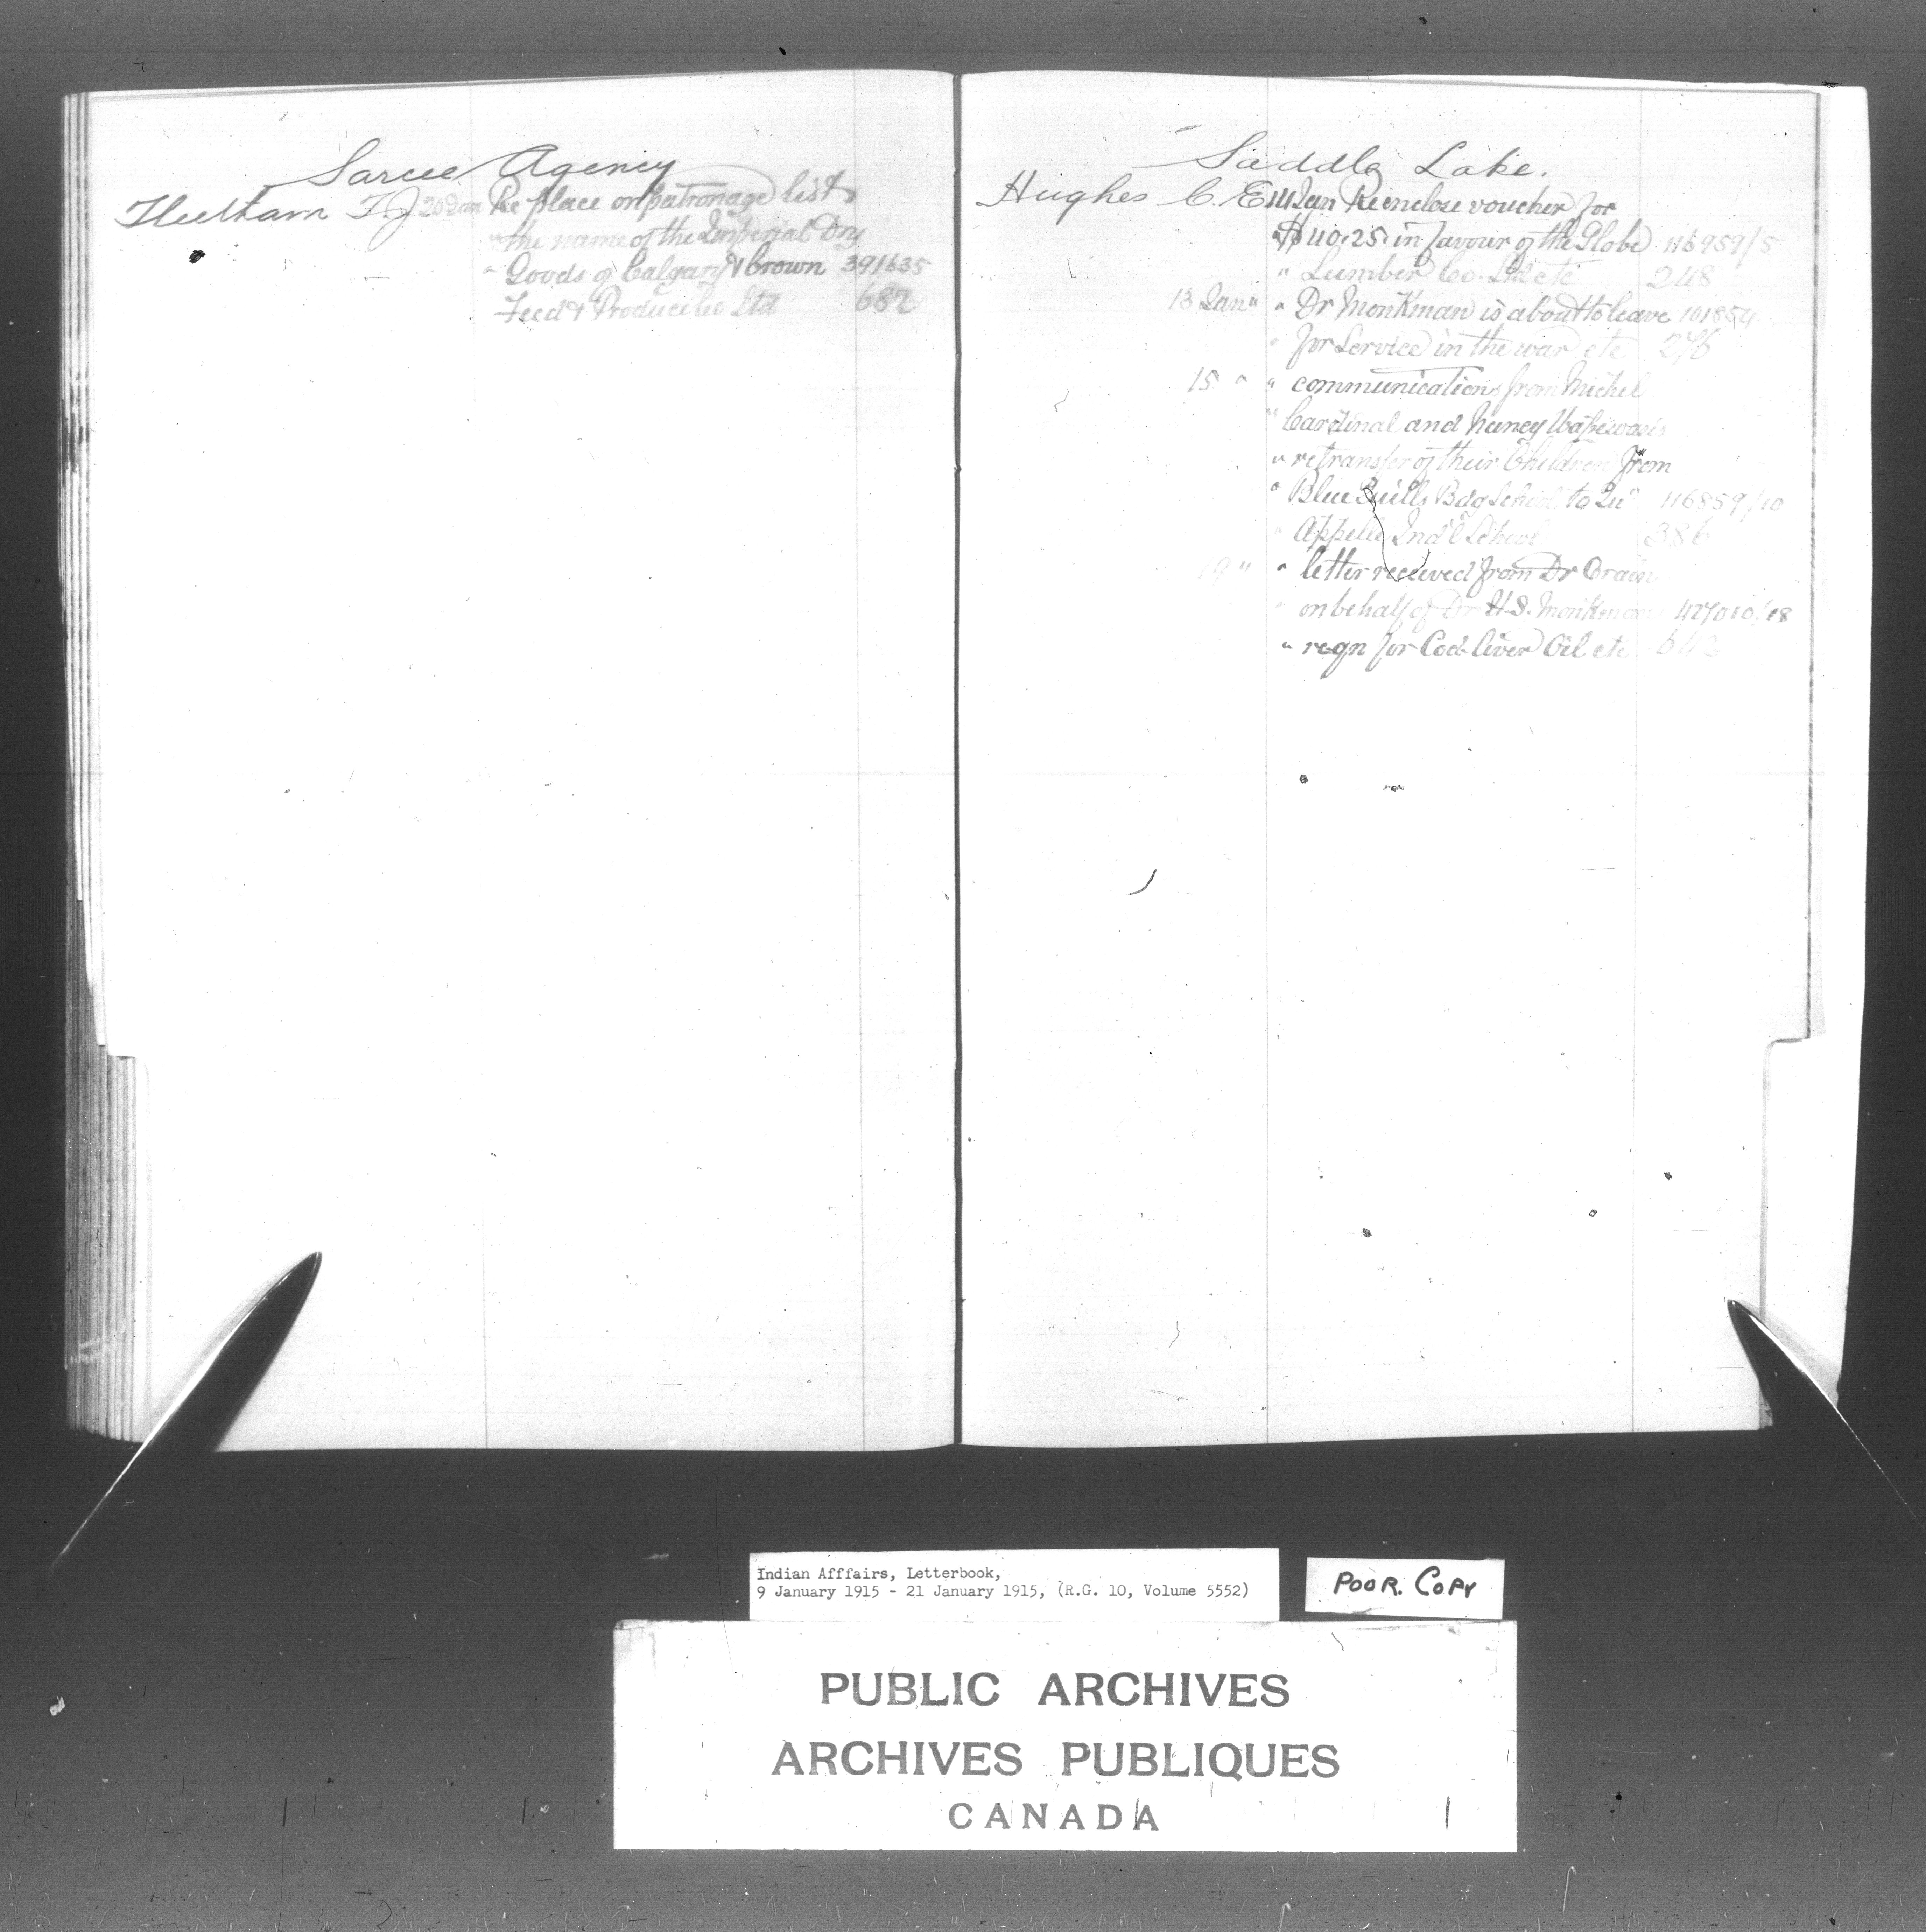 Sarcee Agency
Fleetham T.J. 20 Jan Re place on patronage list
" the name of the Imperial Dry
" Goods of Calgary & Brown 391635
Feed & Produce Co Ltd 682
Saddle Lake.
Hughes C. E. 14 Jan Re enclose voucher for
" $40.25 in favour of the Globe 116959/5
" Lumber Co. Ltd etc 248
13 Jan " " Dr Monkman is about to leave 101854
" for Service in the war etc 276
15 " " communications from Michel
" Cardinal and Nancy
" re transfer of their Children from
" Blue Quills Bdg School to Qu" 116859/10
" Appelle Ind'l School 386
19 " " letter received from Dr
" on behalf of Dr H.S. Monkman 427010/18
" reqn for Cod liver Oil etc
Indian Afffairs, Letterbook,
9 January 1915 - 21 January 1915, (R.G. 10, Volume 5552)
POOR. COPY
PUBLIC ARCHIVES
ARCHIVES PUBLIQUES
CANADA